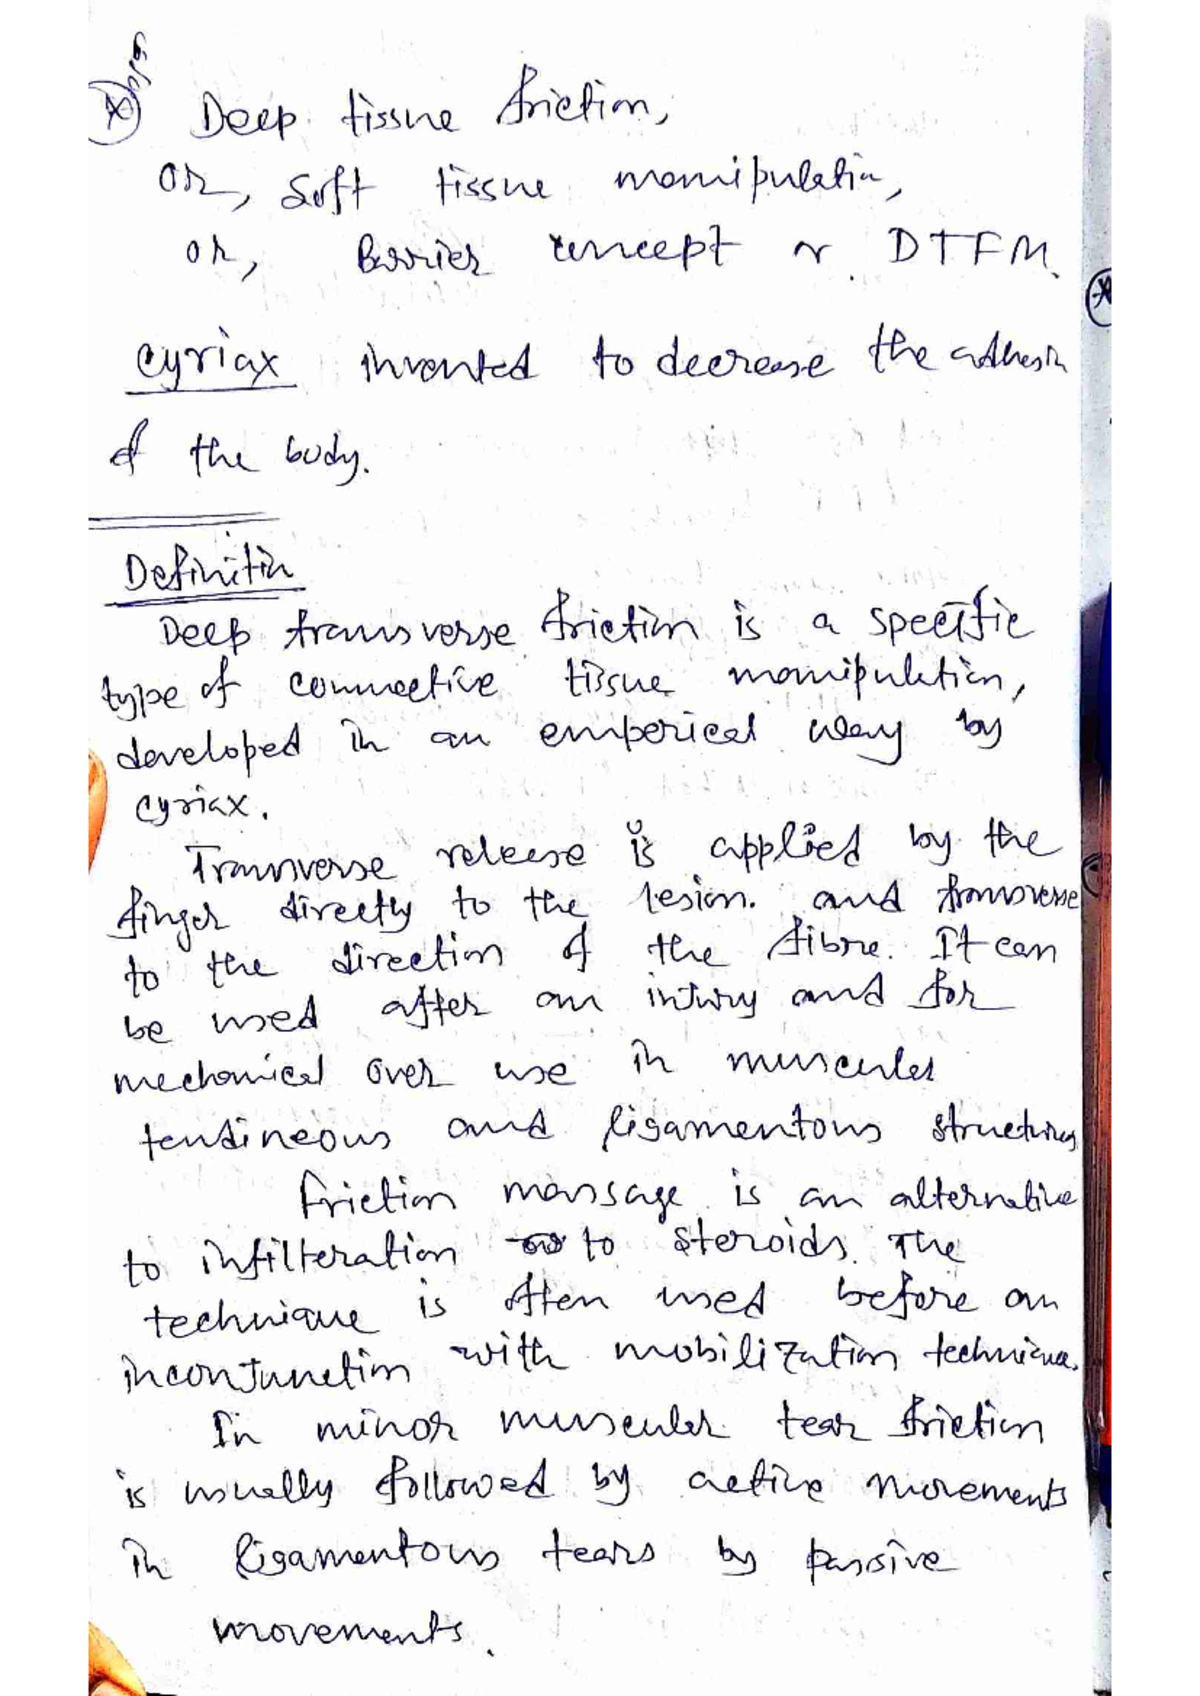 Deep tissue friction,
or, soft tissue manipulatin,
or, Barrier concept or DTFM.
cyriax invented to decrease the adhesin
of the body.
Definitin
Deep transverse friction is a specific
type of connective tissue manipulation,
developed in an emperical way by
cyriax.
Trannverse release is applied by the
finger directly to the lesion. and transverse
to the direction of the fibre. It can
be used after an injury and for
mechanical over use in muscular
tendineous and ligamentous structures
friction massage is an alternative
to infilteration to steroids. The
technique is often used before an
inconjunction with mobilization technique.
In minor muscular tear friction
is usually followed by active movements
in ligamentous tears by passive
movements.